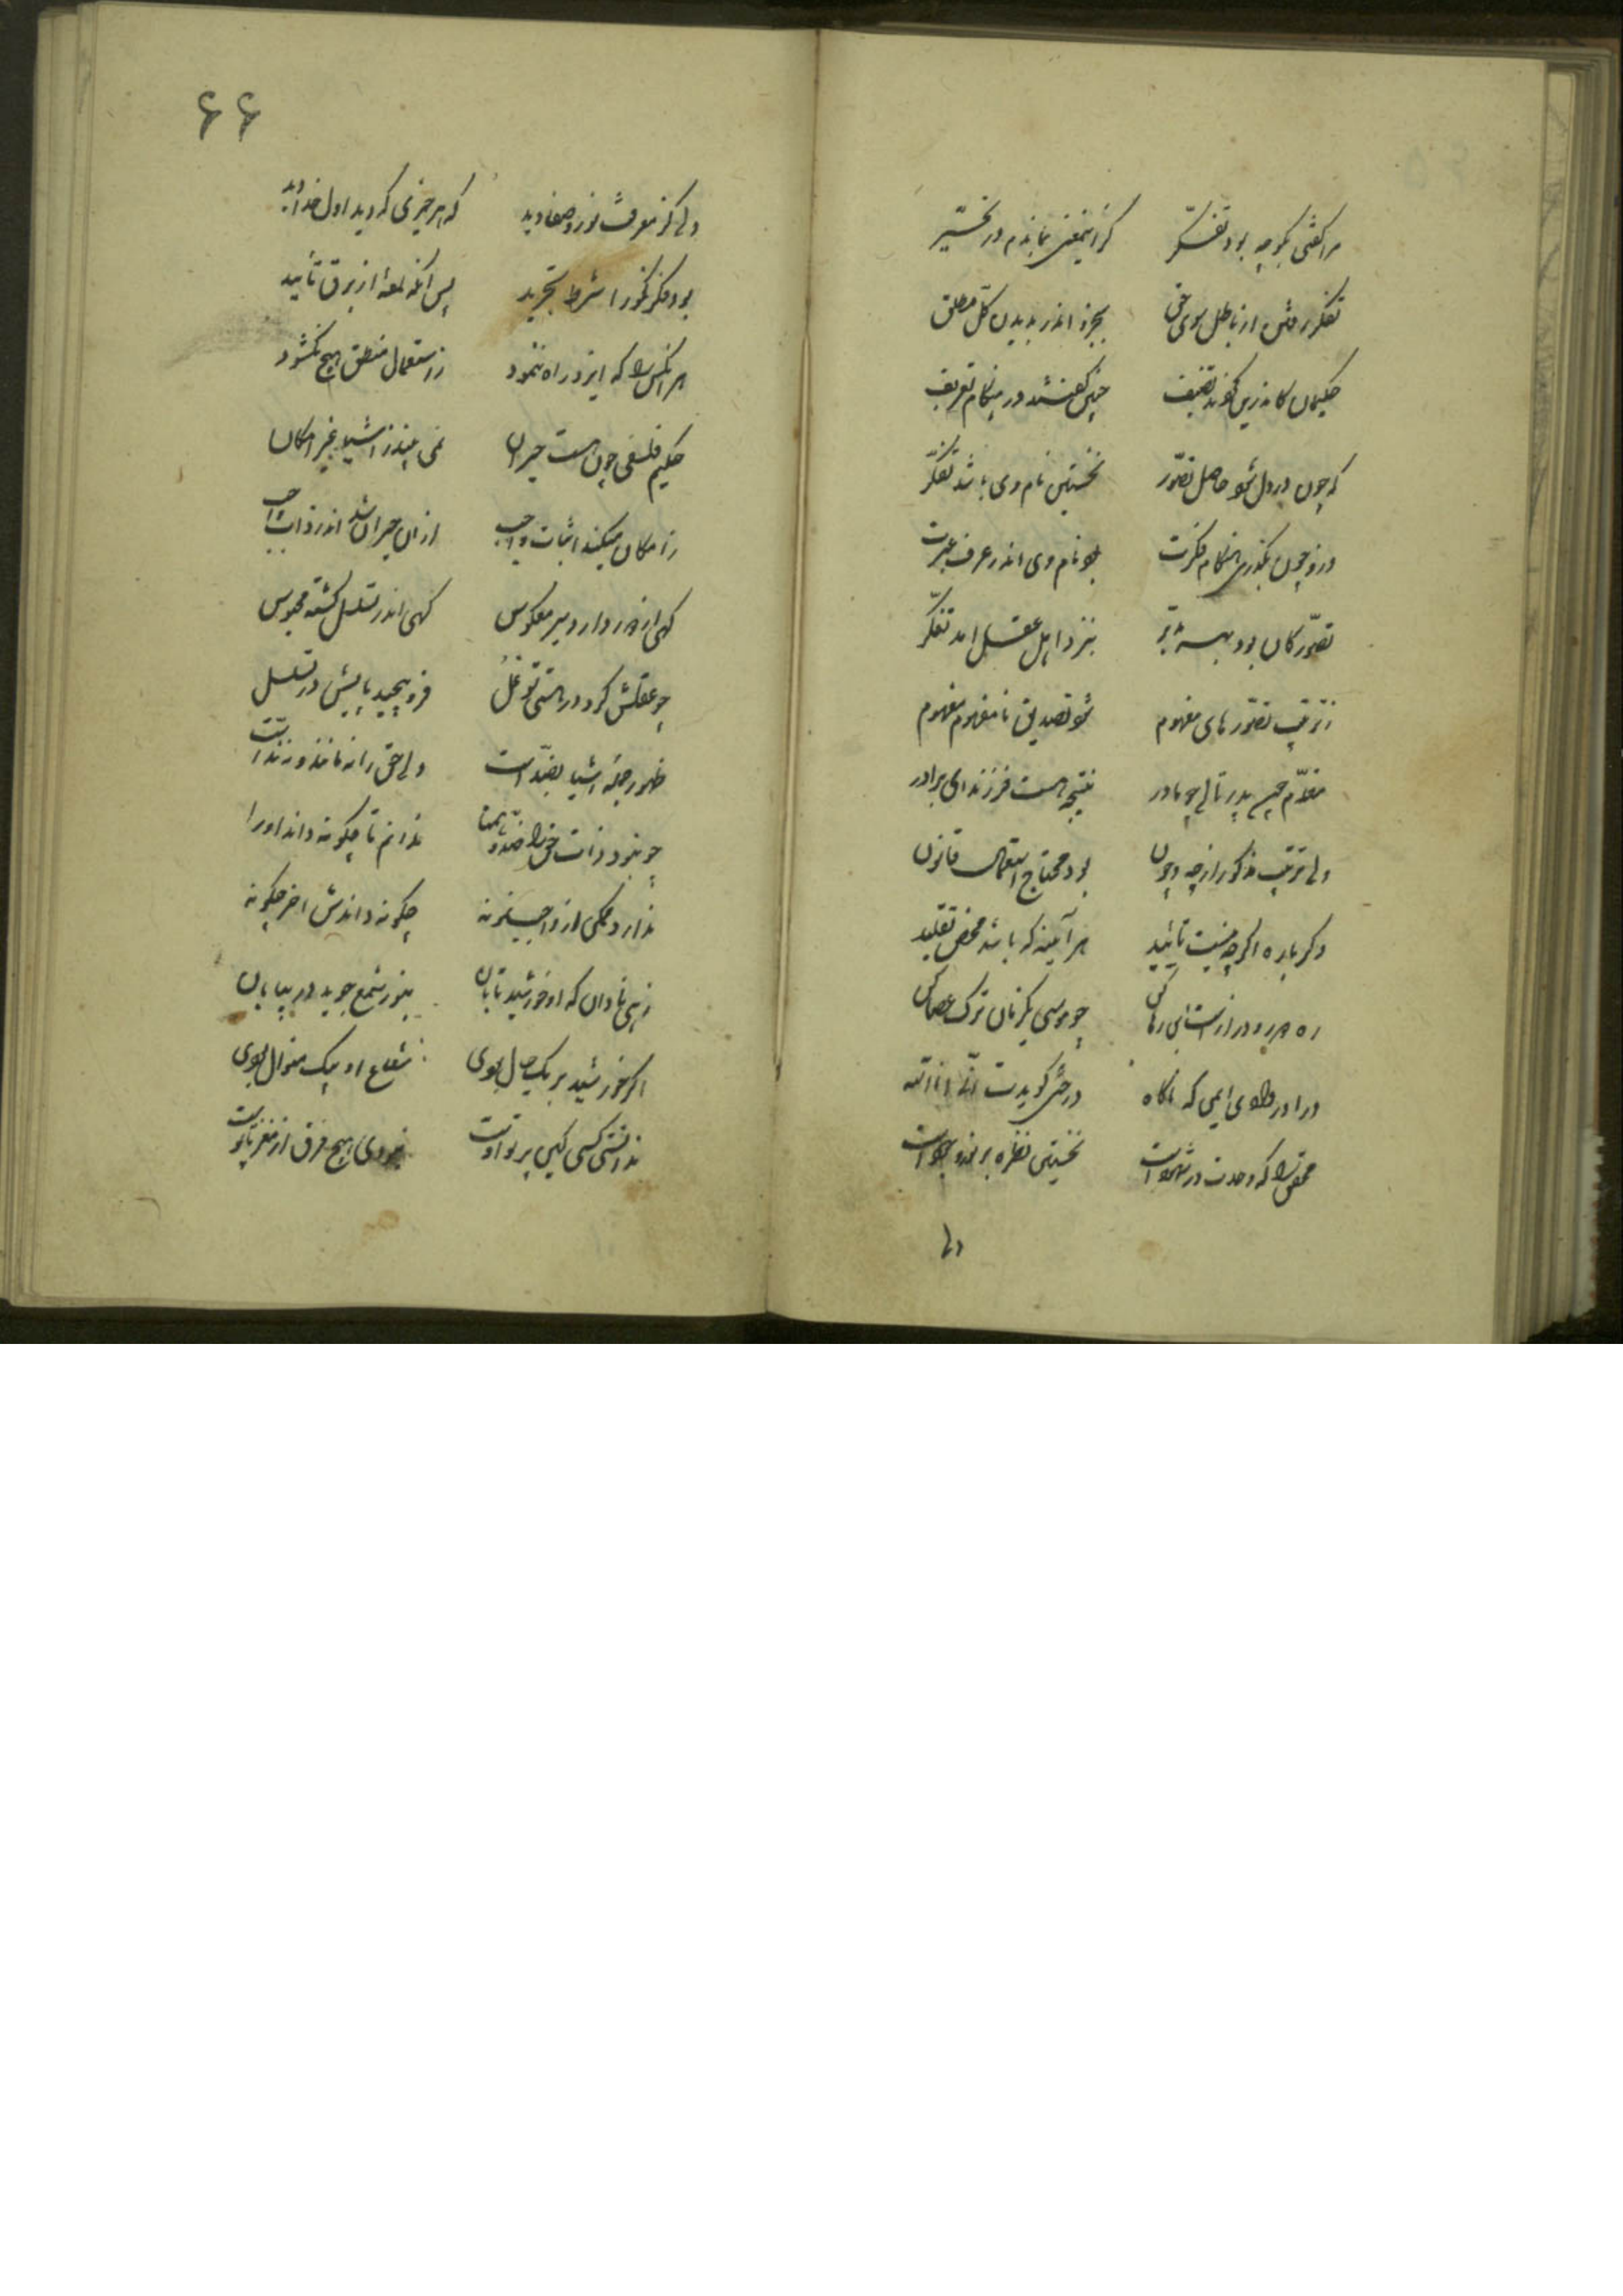 مرا گفتی بگو چه بود تفکر کزاینمعنی بماندم در تحیّر
تفکر رفتن از باطل سوی حق بجزو اندر بدیدن کلّ مطلق
حکیمان کاندرین کردند تصنیف چنین گفتند در هنگام تعریف
که چون در دل شود حاصل تصوّر نخستین نام وی باشد تذکّر
وزو چون بگذری هنگام فکرت بود نام وی اندر عرف عبرت
تصوّر کان بود بهر تدبّر بنزد اهل عقل امد تفکّر
ز ترتیب تصوّرهای مفهوم شود تصدیق نامفهوم مفهوم
مقدّم چون پدر تالی چو مادر نتیجه هست فرزند ای برادر
ولی ترتیب مذکور از چه و چون بود محتاج استعمال قانون
دگرباره اگر چه نیست تأیید هر آیینه که باشد محض تقلید
ره دور و دراز است این رها کن چو موسی یکزمان ترک عصا کن
درا در وادی ایمن که ناگاه درختی گویدت انّی انا الله
محقق را که وحدت در شهود است نخستین نظره بر نور وجود است
ولی
۶۶
دلی کز معرفت نور و صفا دید که هر چیزی که دید اول خدا دید
بود فکر نکو را شرط تجرید پس آنگه لمعهٔ از برق تأیید
هر انکس را که ایزد راه ننمود ز استعمال منطق هیچ نگشود
حکیم فلسفی چون هست حیران نمی بیند ز اشیا غیر امکان
ز امکان میکند اثبات واجب ازان حیران شد اندر ذات واجب
گهی از دور دارد سیر معکوس گهی اندر تسلسل گشته محبوس
چو عقلش کرد در هستی توغّل فرو پیچید پایش در تسلسل
ظهور جمله اشیا بضدّ است ولی حق را نه مانند و نه ندّ است
چو نبود ذات حق را ضدّ و همتا ندانم تا چگونه داند او را
ندارد ممکن از واجب نمونه چگونه داندش اخر چگونه
زهی نادان که او خورشید تابان بنور شمع جوید در بیابان
اگر خورشید بر یک حال بودی شعاع او بیک منوال بودی
ندانستی کسی کین پرتو اوست نبودی هیچ فرق از مغز تا پوست